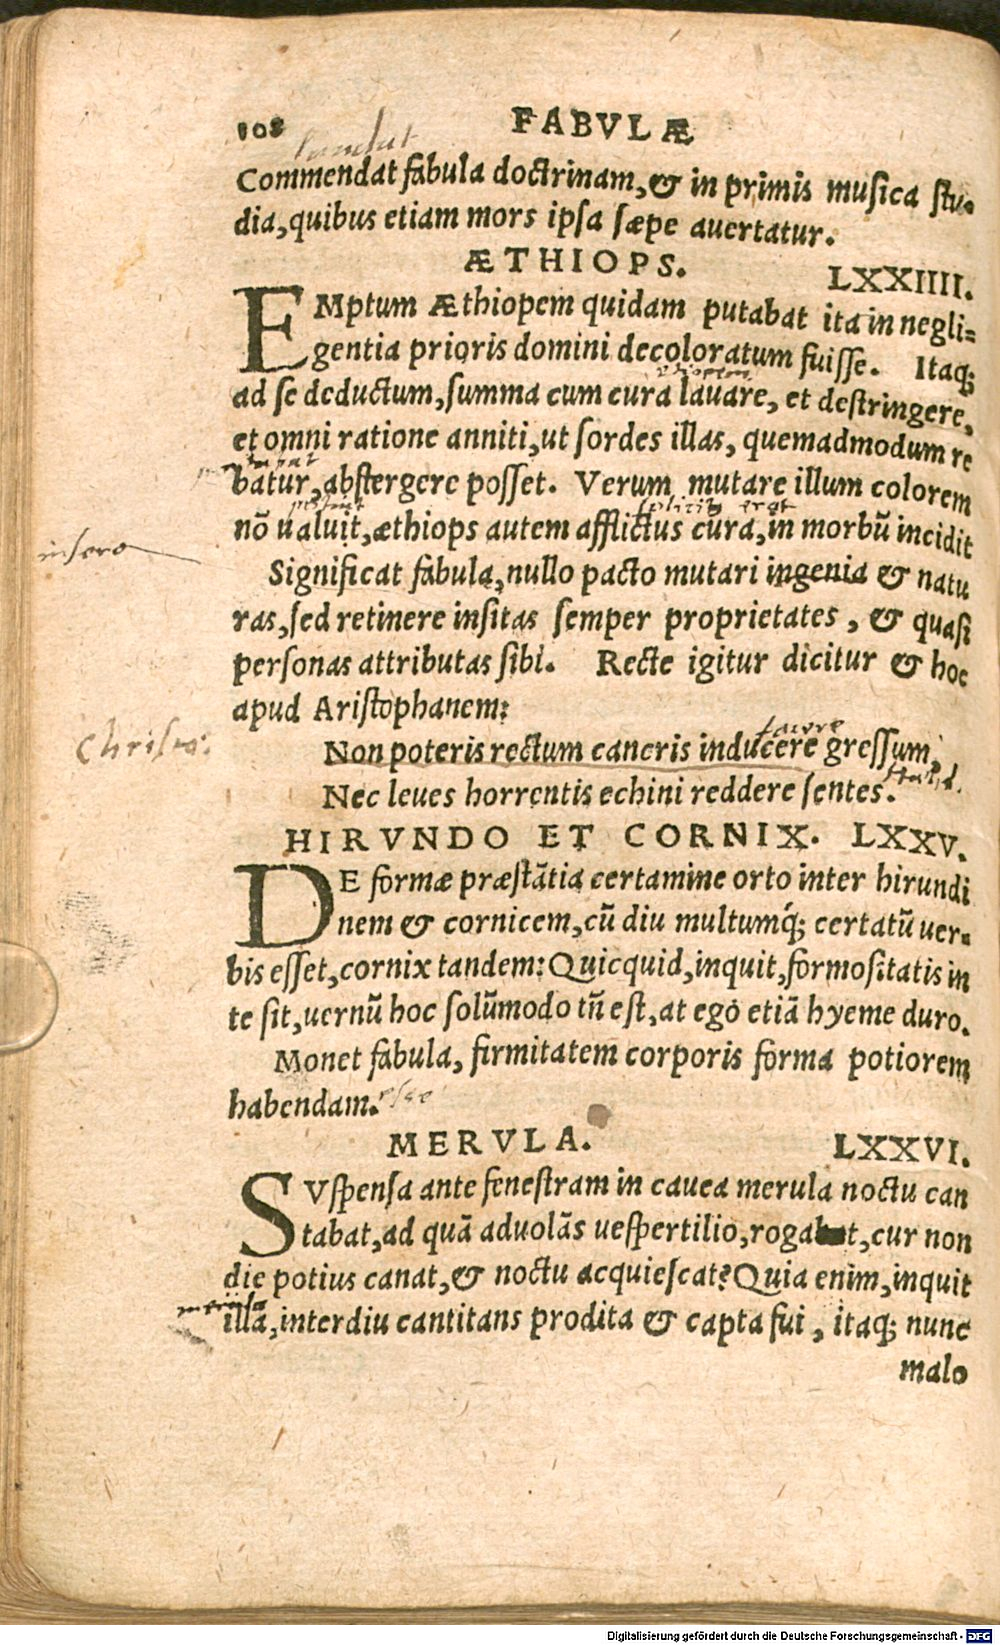 108 FABVLÆ
laudat
Commendat fabula doctrinam, & in primis musica stu-
dia, quibus etiam mors ipsa sæpe auertatur.
ÆTHIOPS. LXXIIII.
EMptum Æthiopem quidam putabat ita in negli-
gentia prioris domini decoloratum fuisse. Itaq;
ad se deductum, summa cum cura lauare, et destringere,
et omni ratione anniti, ut sordes illas, quemadmodum re
batur, abstergere posset. Verum mutare illum colorem
nō ualuit, æthiops autem afflictus cura, in morbū incidit
Significat fabula, nullo pacto mutari ingenia & natu
ras, sed retinere insitas semper proprietates, & quasi
personas attributas sibi. Recte igitur dicitur & hoc
apud Aristophanem:
Non poteris rectum cancris inducere gressum,
Nec leues horrentis echini reddere sentes.
HIRVNDO ET CORNIX. LXXV.
DE formæ præstātia certamine orto inter hirundi
nem & cornicem, cū diu multumq́; certatū uer-
bis esset, cornix tandem: Quicquid, inquit, formositatis in
te sit, uernū hoc solūmodo tñ est, at ego etiā hyeme duro.
Monet fabula, firmitatem corporis forma potiorem
habendam. esse
MERVLA. LXXVI.
SVspensa ante fenestram in cauea merula noctu can
tabat, ad quā aduolās uespertilio, rogabat, cur non
die potius canat, & noctu acquiescat? Quia enim, inquit
merula
illa, interdiu cantitans prodita & capta fui, itaq; nunc
malo
Digitalisierung gefördert durch die Deutsche Forschungsgemeinschaft - DFG